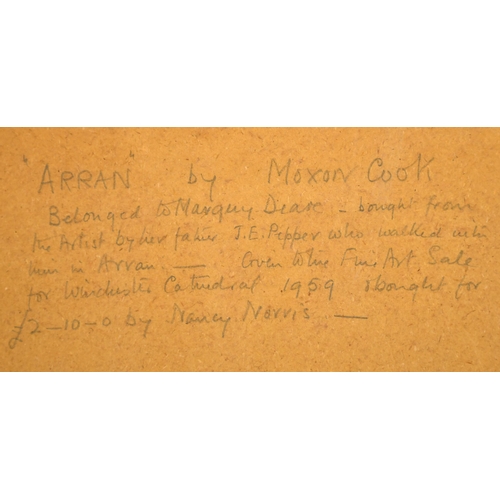 "ARRAN" by - Moxon Cook
Belonged to Deare - bought from
the Artist by her father J.E. Pepper who walked with
him in Arran — Given to the Fine Art Sale
for Winchester Cathedral 1959 & bought for
£2-10-0 by Nancy Norris —